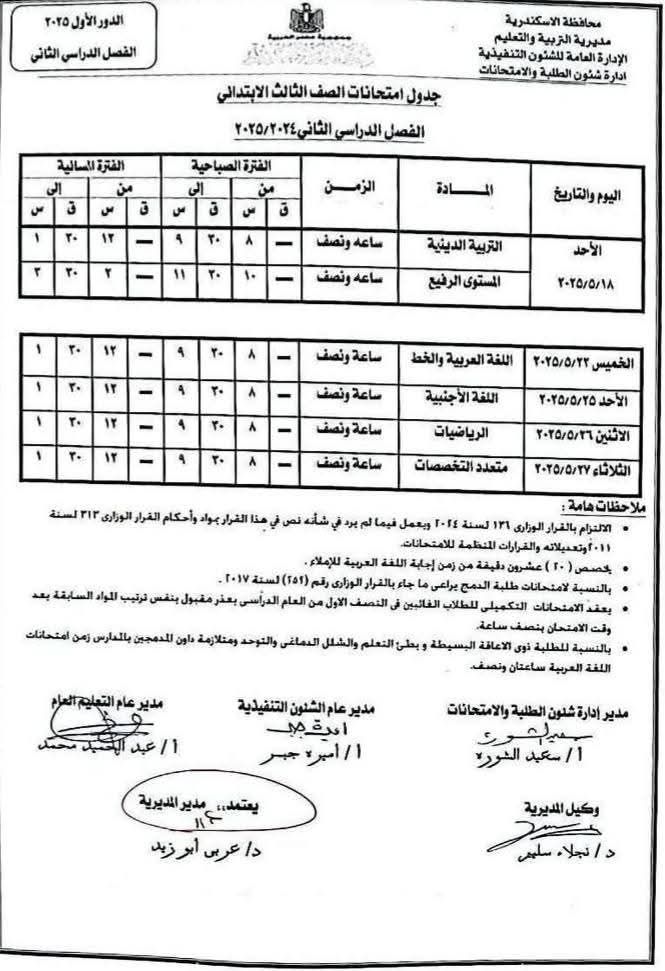 محافظة الاسكندرية
مديرية التربية والتعليم
الإدارة العامة للشئون التنفيذية
ادارة شئون الطلبة والامتحانات
جمهورية مصر العربية
الدور الأول ٢٠٢٥
الفصل الدراسي الثاني
جدول امتحانات الصف الثالث الابتدائي
الفصل الدراسي الثاني ٢٠٢٥/٢٠٢٤
اليوم والتاريخ المـــادة الزمـــن الفترة الصباحية الفترة المسائية
من إلى من إلى
ق س ق س ق س ق س
الأحد ٢٠٢٥/٥/١٨ التربية الدينية ساعه ونصف — ٨ ٣٠ ٩ — ١٢ ٣٠ ١
المستوى الرفيع ساعه ونصف — ١٠ ٣٠ ١١ — ٢ ٣٠ ٣
الخميس ٢٠٢٥/٥/٢٢ اللغة العربية والخط ساعة ونصف — ٨ ٣٠ ٩ — ١٢ ٣٠ ١
الأحد ٢٠٢٥/٥/٢٥ اللغة الأجنبية ساعة ونصف — ٨ ٣٠ ٩ — ١٢ ٣٠ ١
الاثنين ٢٠٢٥/٥/٢٦ الرياضيات ساعة ونصف — ٨ ٣٠ ٩ — ١٢ ٣٠ ١
الثلاثاء ٢٠٢٥/٥/٢٧ متعدد التخصصات ساعة ونصف — ٨ ٣٠ ٩ — ١٢ ٣٠ ١
ملاحظات هامة :
• الالتزام بالقرار الوزارى ١٣٦ لسنة ٢٠٢٤ ويعمل فيما لم يرد في شأنه نص في هذا القرار بمواد وأحكام القرار الوزارى ٣١٣ لسنة
٢٠١١ وتعديلاته والقرارات المنظمة للامتحانات.
• يخصص ( ٢٠ ) عشرون دقيقة من زمن إجابة اللغة العربية للإملاء .
• بالنسبة لامتحانات طلبة الدمج يراعى ما جاء بالقرار الوزارى رقم (٢٥٢) لسنة ٢٠١٧ .
• يعقد الامتحانات التكميلى للطلاب الغائبين فى النصف الاول من العام الدراسى بعذر مقبول بنفس ترتيب المواد السابقة بعد
وقت الامتحان بنصف ساعة.
• بالنسبة للطلبة ذوى الاعاقة البسيطة و بطئ التعلم والشلل الدماغى والتوحد ومتلازمة داون المدمجين بالمدارس زمن امتحانات
اللغة العربية ساعتان ونصف.
مدير إدارة شئون الطلبة والامتحانات مدير عام الشئون التنفيذية مدير عام التعليم العام
أميرة جبر
أ/ سعيد الشوره أ/ أميره جبر أ/ عبد الحميد محمد
وكيل المديرية يعتمد،، مدير المديرية
د/ نجلاء سليم د/ عربى أبو زيد